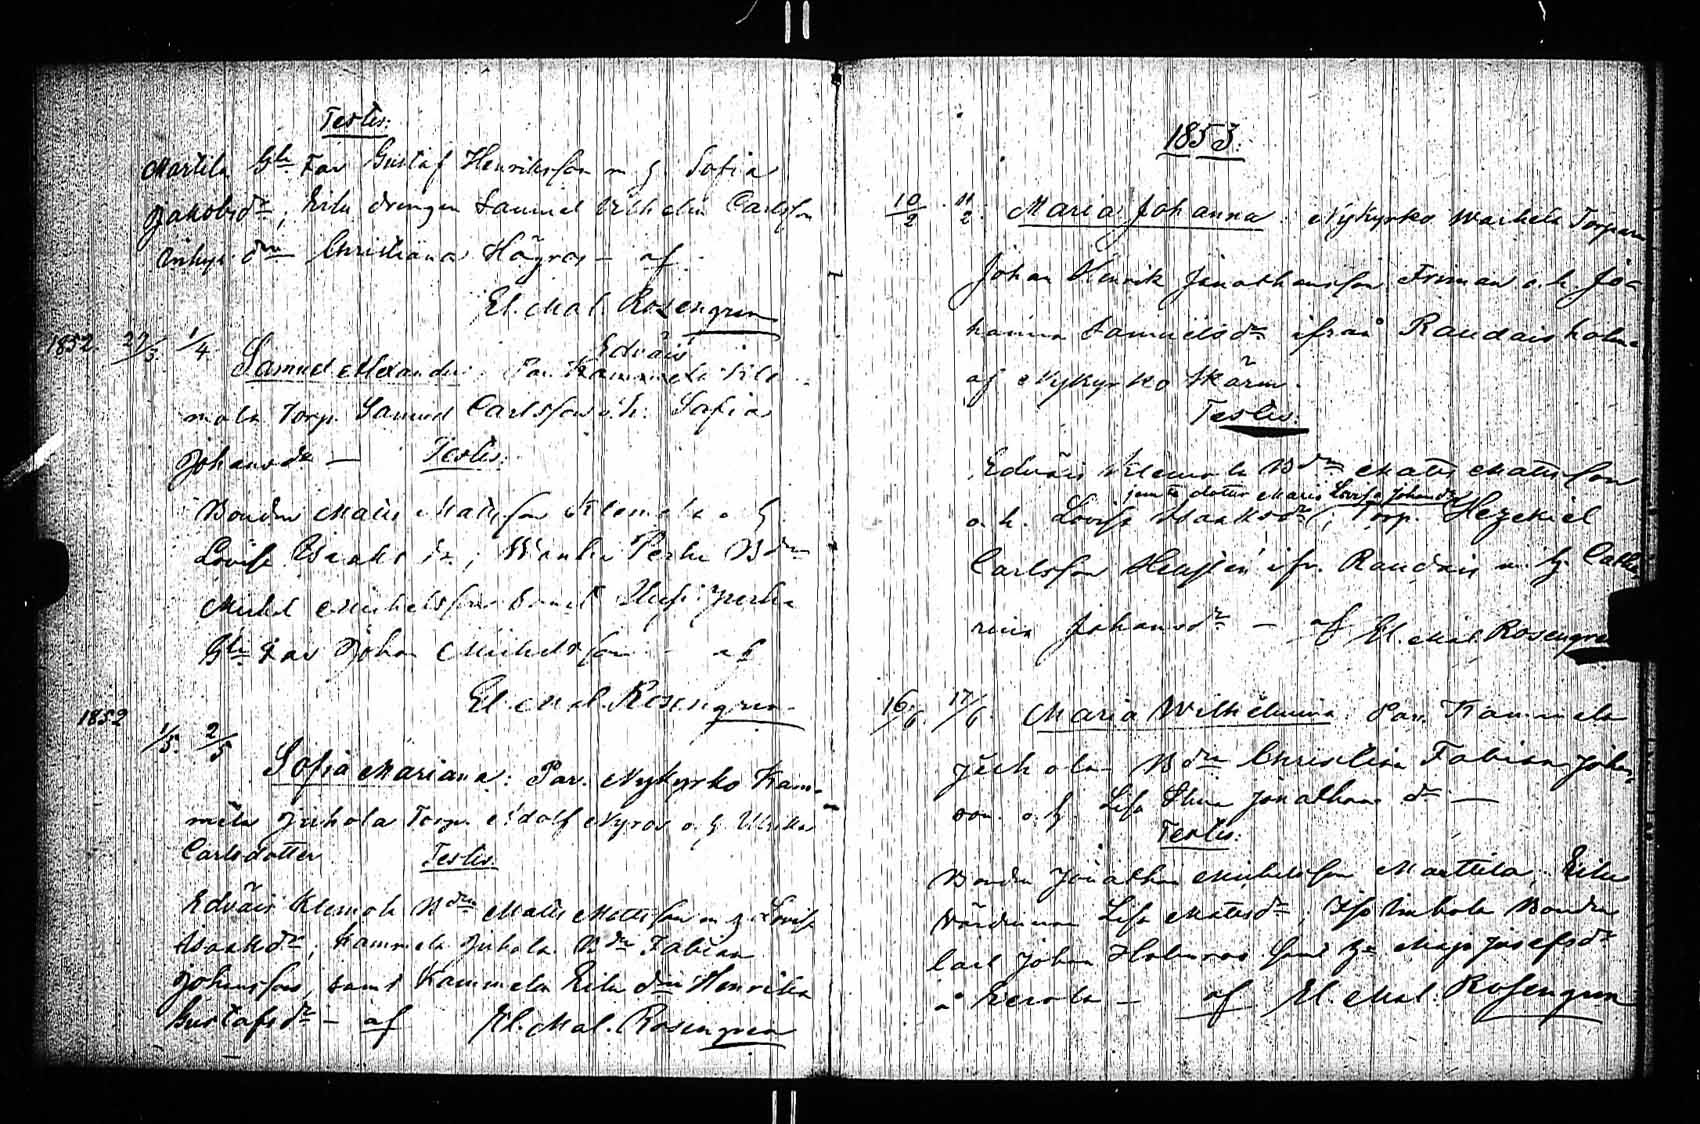 Testes:
Martila Gln Far Gustaf Henriksson m h. Sofia
Jakobsdr, Eilu drengen Samuel Vilhelm Carlsson
dn Christiana Högros – af
El. Mal. Rosengren
1852 27/3 1/4 Samuel Alexander. Par. Edväis
mola Torp. Samuel Carlsson o. h. Sofia
Johansdr — Testes:
Bonden Matts Mattsson Klemola o. h
Lovisa Isaks dr; Perku Bdn
Michel Michelsson samt
Gln Far Johan Michelsson – af
El. Mal. Rosengren
1852 1/5 2/5
Sofia Mariana: Par. Nykyrko Kam-
mela Juhola Torp. Adolf Nyroos o. h Ulrika
Carlsdotter. Testes.
Edväis Klemola Bdn Matts Mattsson m h Lovisa
Isaaksdr; Kammela Juhola Bdn Fabian
Johansson, samt Kammela Eilu dn Henrika
Gustafsdr – af El. Mal. Rosengren
1853.
10/2 11/2 Maria Johanna. Nykyrko Warhela Torparn
Johan Henrik Jonathansson Friman o. h. Jo-
hanna Samuelsdr ifrån Raudais holme
af Nykyrko Skären.
Testes:
Edväis Klemola Bdn Matts Mattsson
jemte dotter Maria Lovisa Johansdr
o. h. Lovisa Isaaksdr; Torp. Hezekiel
Carlsson ifr. Raudais m. h. Catha-
rina Johansdr – af El. Mal. Rosengren
16/6. 17/6. Maria Wilhelmina. Par. Kammela
Juhola Bdn Christian Fabian Johns-
son o. h. Lisa Stina Jonathans dr —
Testes:
Bonden Jonathan Michelsson Marttila, Eilu
Wärdinnan Lisa Matsdr; Bonden
Carl Johan Maja Josefsdr
å Eerola – af El. Mal. Rosengren